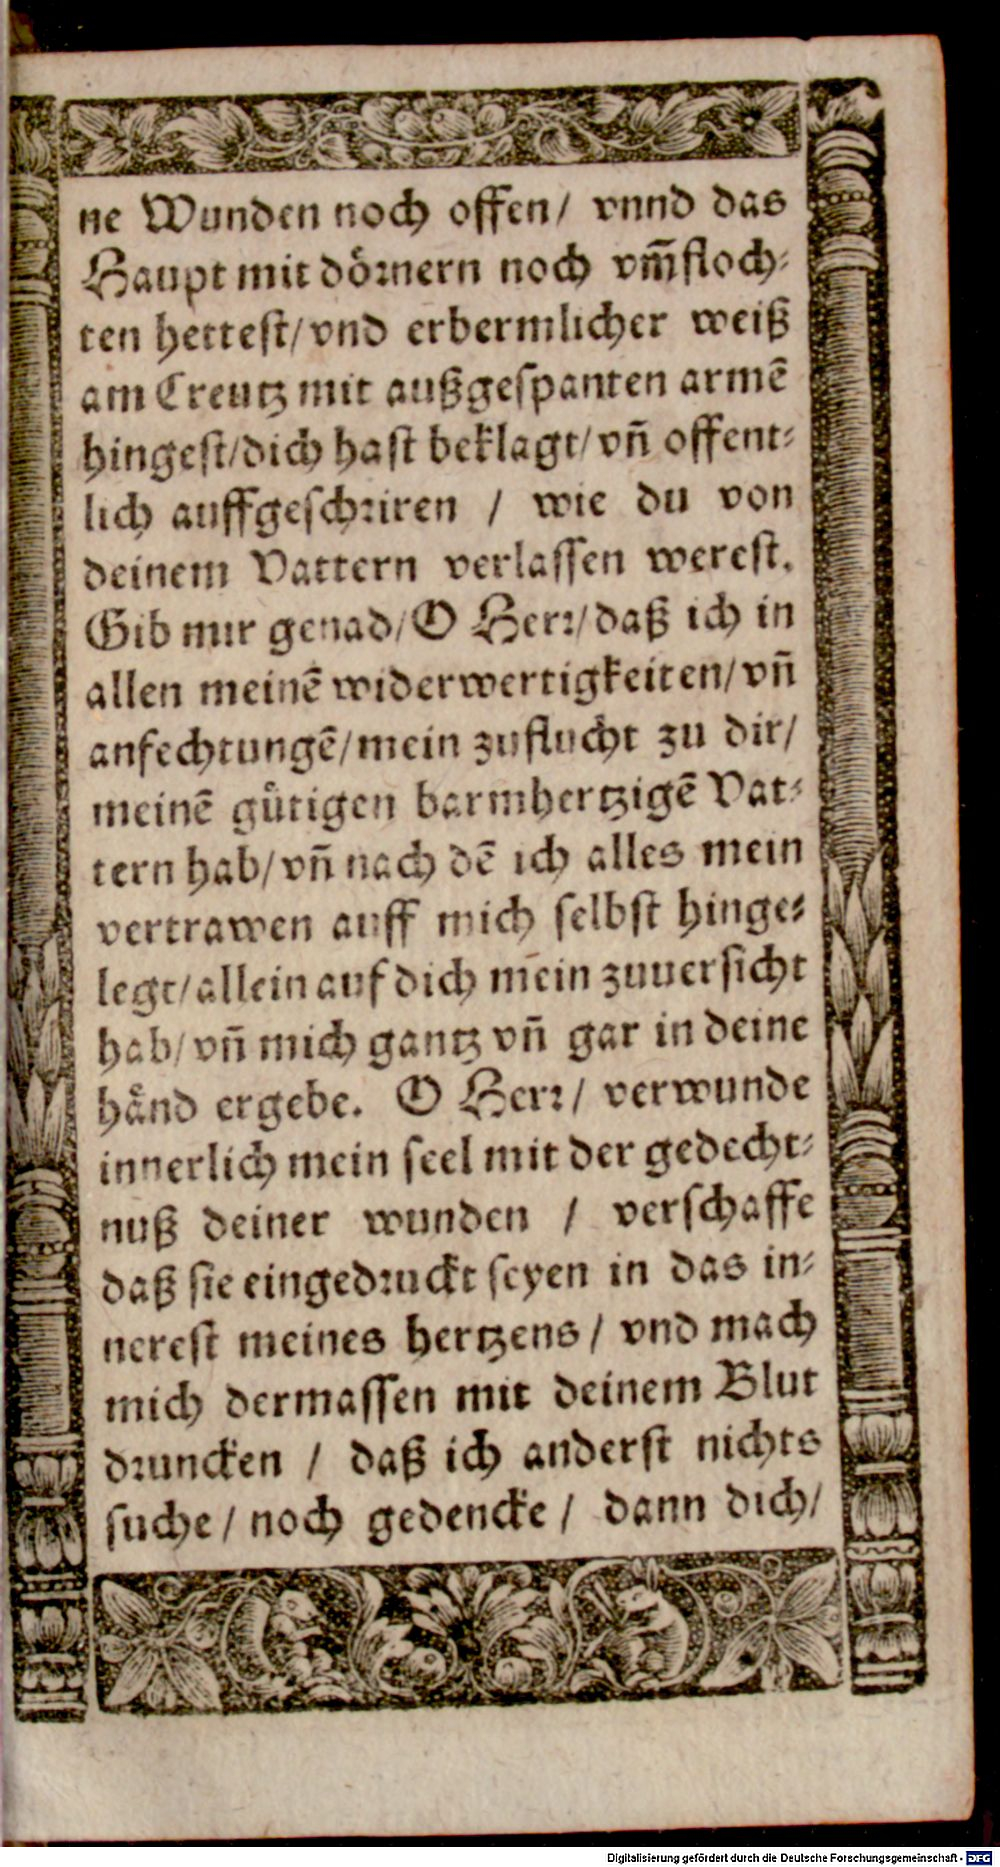 ne Wunden noch offen/ vnnd das
Haupt mit dörnern noch vm̃floch-
ten hettest/ vnd erbermlicher weiß
am Creutz mit außgespanten armẽ
hingest/ dich hast beklagt/ vñ offent-
lich auffgeschriren / wie du von
deinem Vattern verlassen werest.
Gib mir genad/ O Herr/ daß ich in
allen meinẽ widerwertigkeiten/ vñ
anfechtungẽ/ mein zuflucht zu dir/
meinẽ gütigen barmhertzigẽ Vat-
tern hab/ vñ nach dẽ ich alles mein
vertrawen auff mich selbst hinge-
legt/ allein auf dich mein zuuersicht
hab/ vñ mich gantz vñ gar in deine
händ ergebe. O Herr/ verwunde
innerlich mein seel mit der gedecht-
nuß deiner wunden / verschaffe
daß sie eingedruckt seyen in das in-
nerest meines hertzens/ vnd mach
mich dermassen mit deinem Blut
druncken / daß ich anderst nichts
suche/ noch gedencke/ dann dich/
Digitalisierung gefördert durch die Deutsche Forschungsgemeinschaft - DFG